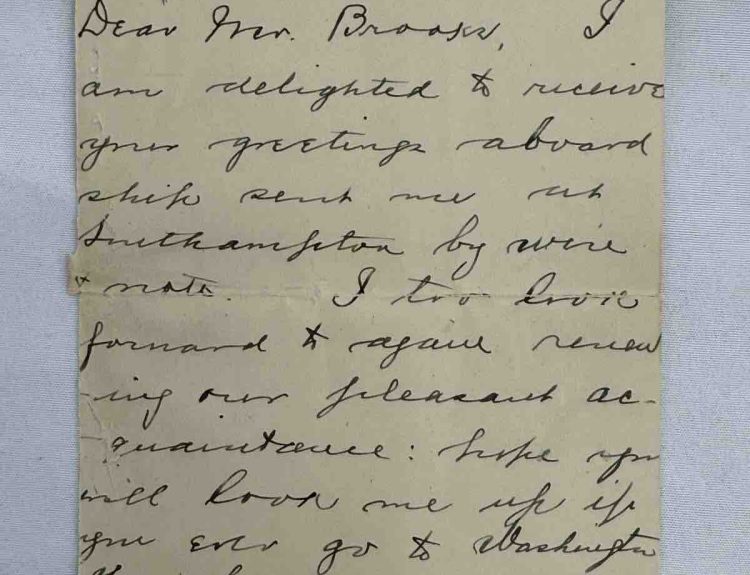 Dear Mr. Brooks, I
am delighted to receive
your greetings aboard
ship sent me at
Southampton by wire
+ note. I too look
forward to again renew
-ing our pleasant ac-
quaintance: hope you
will look me up if
you ever go to Washington